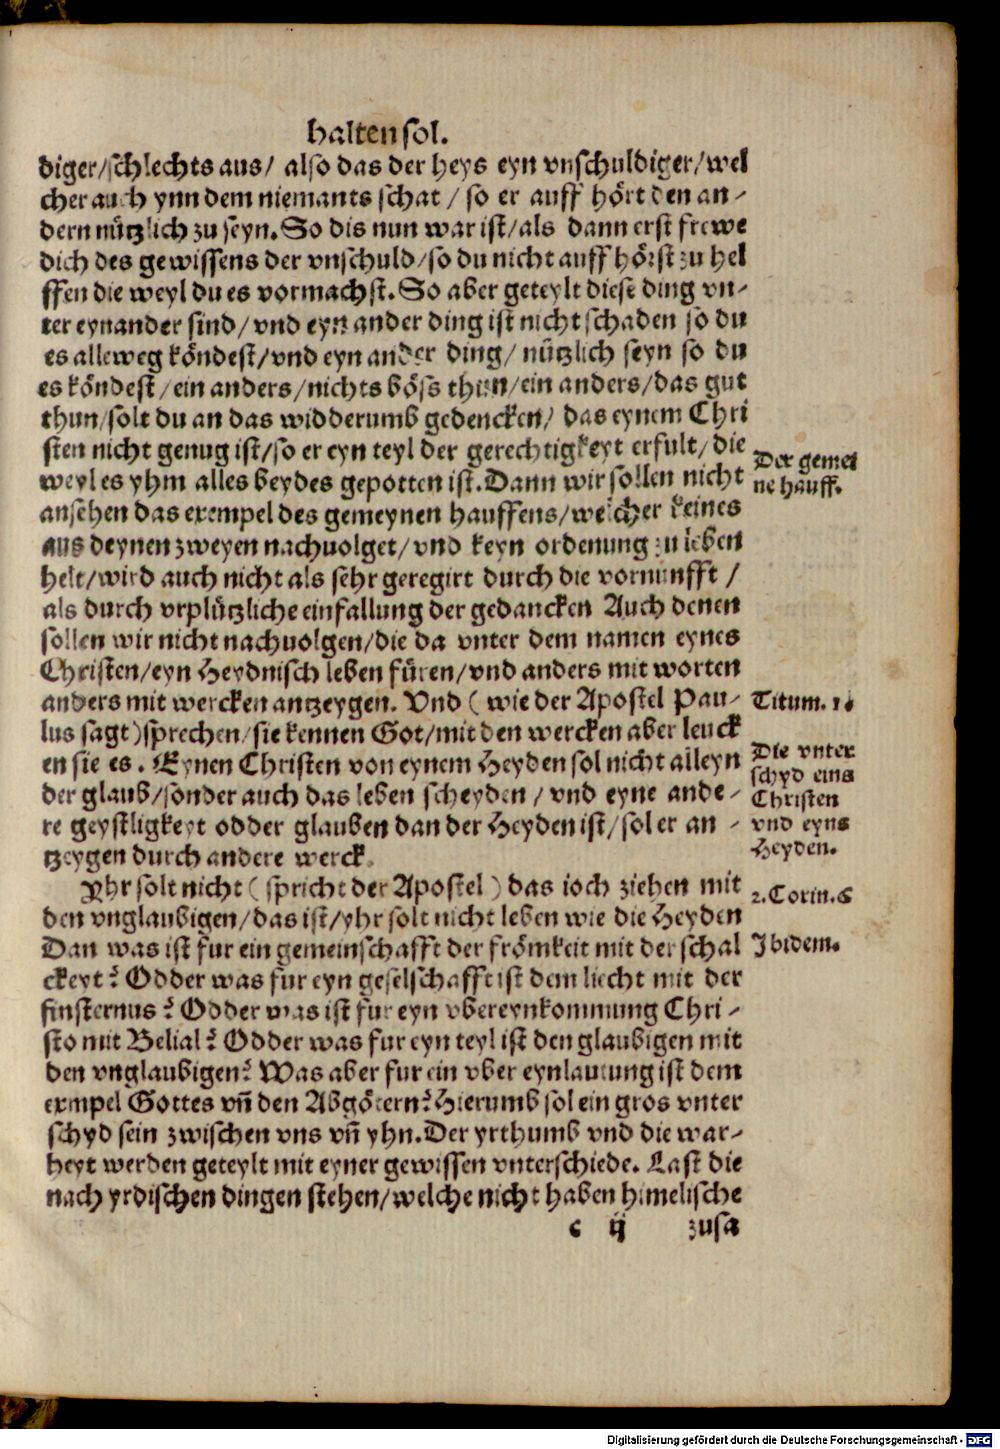 halten sol.
diger/schlechts aus/ also das der heys eyn vnschuldiger/wel
cher auch ynn dem niemants schat / so er auff hört den an-
dern nützlich zu seyn. So dis nun war ist/als dann erst frewe
dich des gewissens der vnschuld/so du nicht auff hörst zu hel
ffen die weyl du es vormachst. So aber geteylt diese ding vn-
ter eynander sind/vnd eyn ander ding ist nicht schaden so du
es alleweg köndest/vnd eyn ander ding/ nützlich seyn so du
es köndest/ein anders/nichts böss thun/ein anders/das gut
thun/solt du an das widderumb gedencken/ das eynem Chri
sten nicht genug ist/so er eyn teyl der gerechtigkeyt erfult/die
weyl es yhm alles beydes gepotten ist. Dann wir sollen nicht
Der gemei
ne hauff.
ansehen das exempel des gemeynen hauffens/welcher keines
aus deynen zweyen nachuolget/vnd keyn ordenung zu leben
helt/wird auch nicht als sehr geregirt durch die vornunfft /
als durch vrplützliche einfallung der gedancken Auch denen
sollen wir nicht nachuolgen/die da vnter dem namen eynes
Christen/eyn Heydnisch leben füren/vnd anders mit worten
anders mit wercken antzeygen. Vnd ( wie der Apostel Pau-
Titum. 1.
lus sagt)sprechen/sie kennen Got/mit den wercken aber leuck
en sie es. Eynen Christen von eynem Heyden sol nicht alleyn
der glaub/sonder auch das leben scheyden / vnd eyne ande-
re geystligkeyt odder glauben dan der Heyden ist/sol er an -
tzeygen durch andere werck.
Die vnter
schyd eins
Christen
vnd eyns
Heyden.
Yhr solt nicht ( spricht der Apostel ) das ioch ziehen mit
2. Corin. 6
den vnglaubigen/das ist/yhr solt nicht leben wie die Heyden
Dan was ist fur ein gemeinschafft der frömkeit mit der schal
Ibidem.
ckeyt? Odder was fur eyn geselschafft ist dem liecht mit der
finsternus? Odder was ist fur eyn vbereynkommung Chri -
sto mit Belial? Odder was fur eyn teyl ist den glaubigen mit
den vnglaubigen? Was aber fur ein vber eynlautung ist dem
exmpel Gottes vn̄ den Abgötern? Hierumb sol ein gros vnter
schyd sein zwischen vns vn̄ yhn. Der yrthumb vnd die war-
heyt werden geteylt mit eyner gewissen vnterschiede. Last die
nach yrdischen dingen stehen/welche nicht haben himelische
c ij zusa
Digitalisierung gefördert durch die Deutsche Forschungsgemeinschaft - DFG